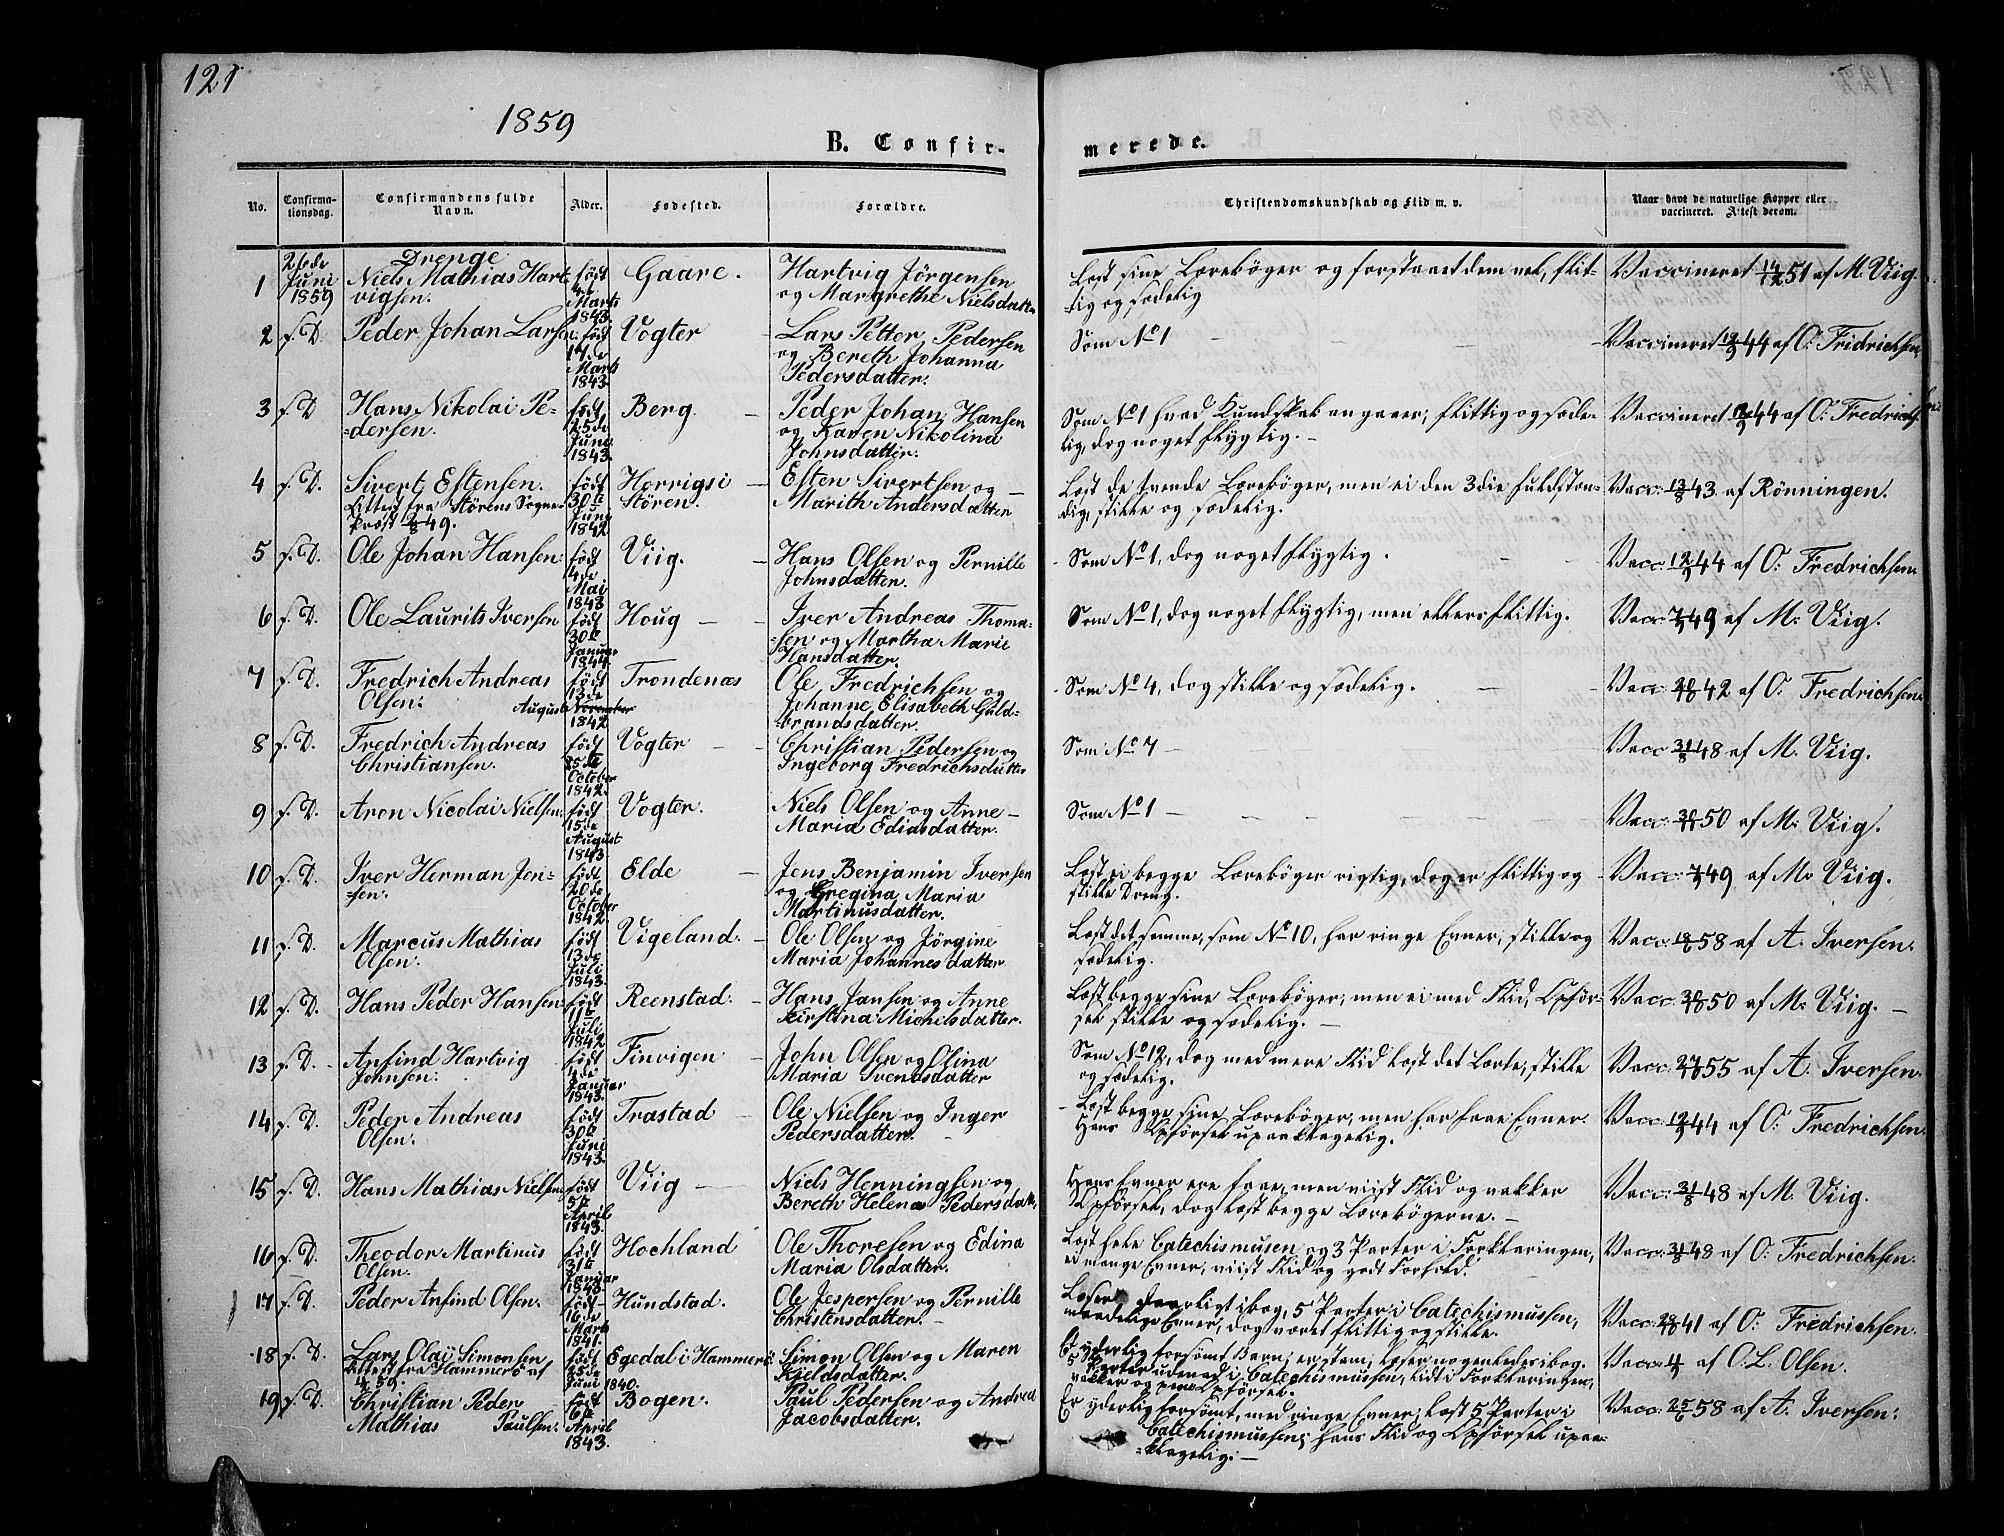 121
1859
B. Confirmerede.
No.
Confirmationsdag.
Confirmandens fulde Navn.
Alder.
Fødested.
Forældre.
Christendomskundskab og Flid m. v.
Naar havt de naturlige Kopper eller vaccineret. Attest derom.
Drenge
1 26de Juni 1859 Niels Mathias Hartvigsen. født Marts 1843. Gaare. Hartvig Jörgensen og Margrethe Nielsdatter Læst sine Lærebøger og forstaaet dem vel, flittig og sædelig Vaccineret 14/12 51 af M. Viig.
2 s. D. Peder Johan Larsen født 17de Marts 1843. Vogter Lars Petter Pedersen og Bereth Johanna Pedersdatter. Som No 1 Vaccineret 12/9 44 af O. Fridrichsen
3 s. D Hans Nikolai Pedersen. født 25de Juni 1843. Berg. Peder Johan Hansen og Karen Nikolina Johnsdatter. Som No 1 hvad Kundskab angaaer; flittig og sædelig, dog noget flygtig. Vaccineret 12/9 44 af O. Fredrichsen
4 s. D. Sivert Estensen. Attest fra Störens Sogneprest 2/8 49. født 30te Juni 1842 Horrigsi Stören. Esten Sivertsen og Marith Andersdatter Læst de tvende Lærebøger, men ei den 3die fuldstændig, stille og sædelig. Vacc: 13/8 43 af Rönningen.
5 s. D. Ole Johan Hansen: født 4de Mai 1843 Viig. Hans Olsen og Pernille Johnsdatter. Som No 1, dog noget flygtig. Vacc: 12/9 44 af O: Fredrichsen.
6 s. D. Ole Laurits Iversen født 30te Januar 1844. Houg Iver Andreas Thomassen og Martha Marie Hansdatter. Som No 1, dog noget flygtig, men ellers flittig. Vacc: 7/7 49 af M: Viig.
7 s. D. Fredrich Andreas Olsen: født 13de August 1842 Trondenæs Ole Fredrichsen og Johanne Elisabeth Guldbrandsdatter. Som No 4, dog stille og sædelig. Vacc: 42 af O: Fredrichsen.
8 s. D. Fredrich Andreas Christiansen. født 25de October 1842. Vogter Christian Pedersen og Ingeborg Fredrichsdatter Som No 7 Vacc 31/8 48 af M. Viig.
9 s. D. Aron Nicolai Nielsen: født 15de August 1843. Vogter. Niels Olsen og Anne Maria Ediasdatter. Som No 1 Vacc: 50 af M: Viig.
10 s. D. Iver Herman Jensen. født 20de October 1842. Elde Jens Benjamin Iversen og Gregina Maria Martinusdatter. Læst ei begge Lærebøger rigtig, dog er flittig og stille Dreng. Vacc: 7/7 49 af M: Viig.
11 s. D. Marcus Mathias Olsen. født 13de Juli 1843. Vigeland. Ole Olsen og Jörgine Maria Johannesdatter Læst det samme, som No 10, har ringe Evner, stille og sædelig. Vacc: 58 af A. Iversen.
12 s. D. Hans Peder Hansen: født 11te Juli 1842 Reenstad. Hans Jansen og Anne Kirstina Michelsdatter. Læst begge sine Lærebøger, men ei med Flid, Opførsel stille og sædelig. Vacc: 50 af M: Viig.
13 s. D. Anfind Hartvig Johnsen. født 4de Januar 1843. Finvigen John Olsen og Olina Maria Svendsdatter Som No 12, dog med mere Flid læst det Lærte, stille og sædelig. Vacc: 55 af A. Iversen.
14 s. D. Peder Andreas Olsen. født 30te Juni 1843. Trastad Ole Nielsen og Inger Pedersdatter. Læst begge sine Lærebøger, men har faae Evner. Hans Opførsel upaaklagelig. Vacc: 12/9 44 af O: Fredrichsen.
15 s. D. Hans Mathias Nielsen født 5te April 1843. Viig Niels Henningsen og Bereth Helena Pedersdatt. Hans Evner ere faae, men viist Flid og vakker Opførsel, dog læst begge Lærebøgerne. Vacc: 31/8 48 af M. Viig.
16 s. D. Theodor Martinus Olsen. født 31te Januar 1843. Hochland Ole Thoresen og Edina Maria Olsdatter. Læst hele Catechismusen og 3 Parter i Forklaringen, ei mange Evner, viist Flid og godt Forhold. Vacc: 31/8 48 af O: Fredrichsen.
17 s. D. Peder Anfind Olsen. født 16de Marts 1841. Hundstad. Ole Jespersen og Pernille Christensdatter. Læser daarligt i bog, 5 Parter i Catechismussen, maadelige Evner, dog været flittig og stille. Vacc: 41 af O: Fredrichsen.
18 s. D. Lars Olaij Simonsen Attest fra Hammerö af 59. født 25de Juni 1840. Egedal i Hammerö Simon Olsen og Maren Kjeldsdatter. Et yderlig forsømt Barn; er stam; læser nogenledes i bog. 5 Parter udenad i Catechismussen, lidt i Forklaringen, vakker og pen Opførsel. Vacc: 4/7 af O. L. Olsen.
19 s. D. Christian Peder Mathias Paulsen: født 6te April 1843. Bogen. Paul Pedersen og Andrea Jacobsdatter. Er yderlig forsømt, med ringe Evner; læst 5 Parter i Catechismussen; hans Flid og Opførsel upaaklagelig. Vacc: 58 af A. Iversen.